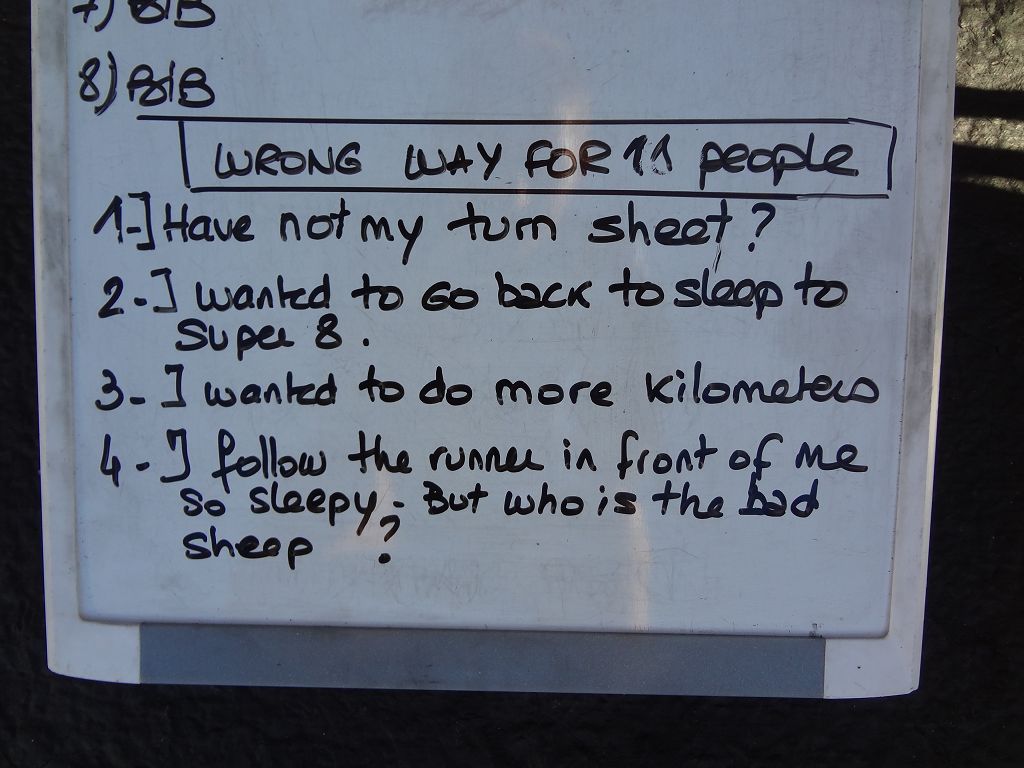 8)
WRONG WAY FOR 11 people
1-] Have not my turn sheet?
2-I wanted to GO back to sleep to
Super 8.
3-I wanted to do more kilometers
4-I follow the runner in front of me
so sleepy. But who is the bad
sheep ?